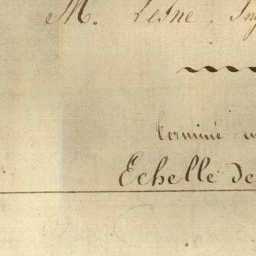 M. Lesne
terminé
Echelle de